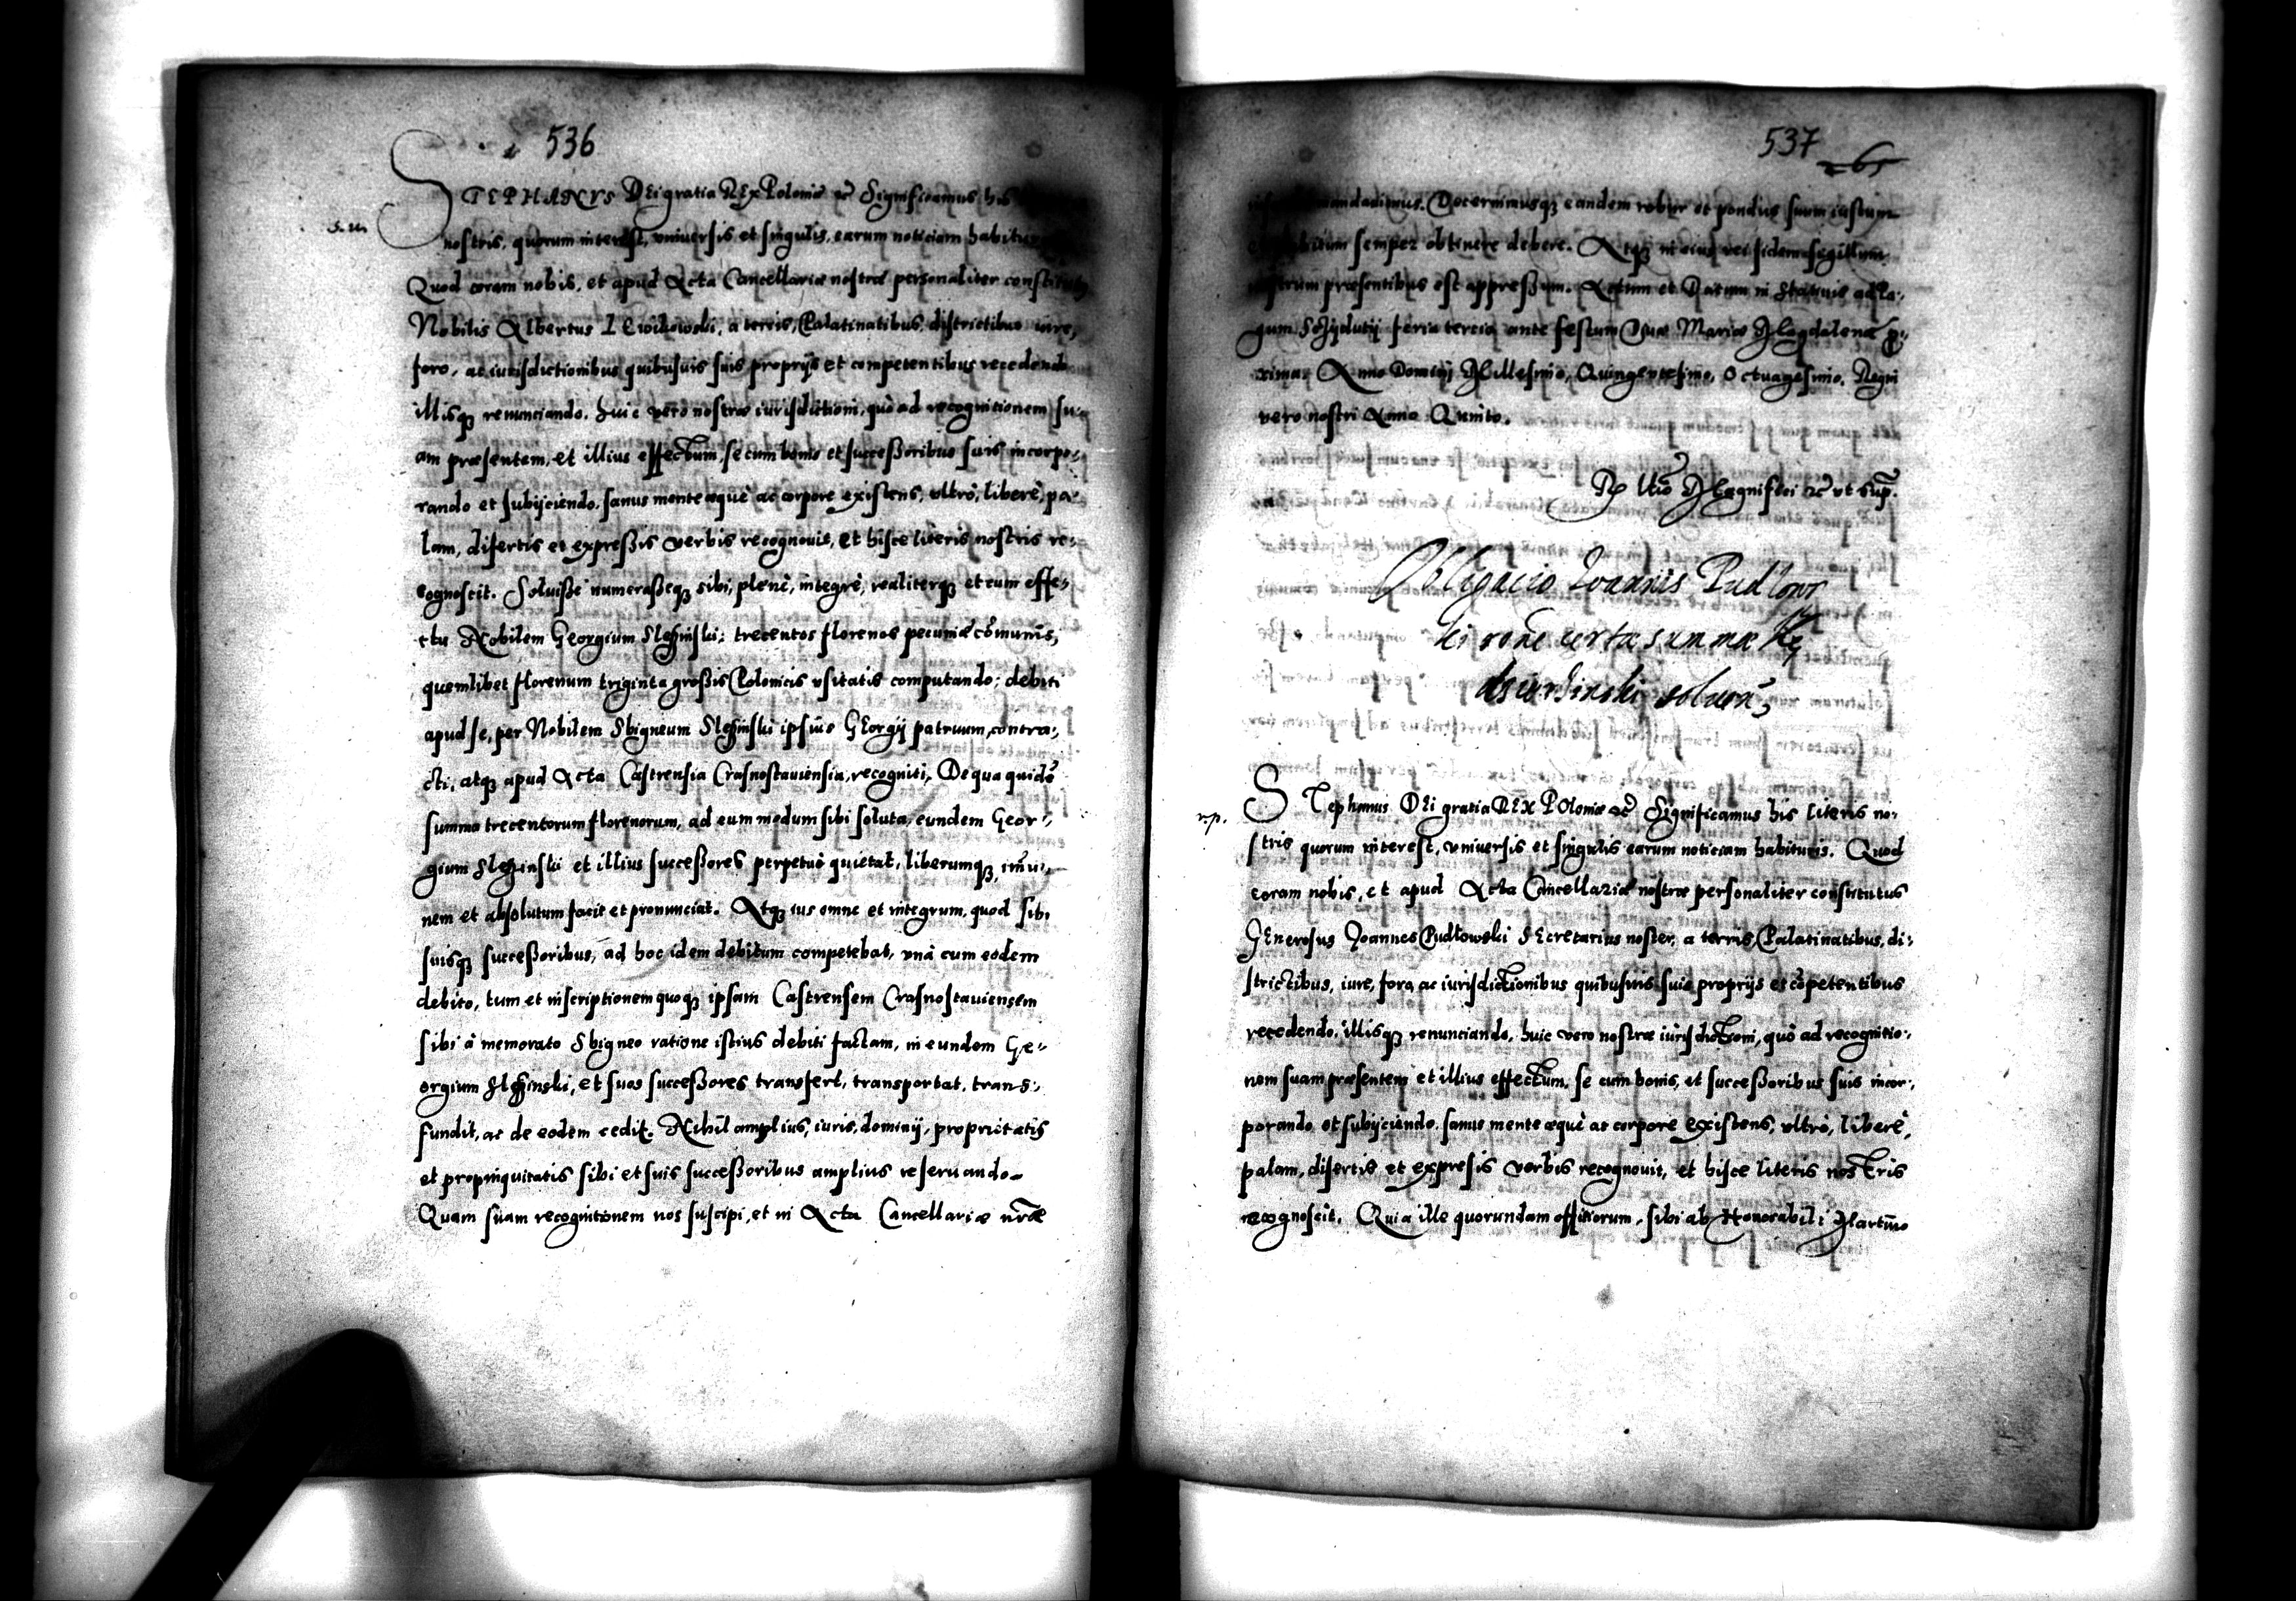 536
STEPHANVS DEi gratia REx Poloniæ &c Significamus his
nostris, quorum interest, vniuersis et singulis, earum noticiam habitur
Quod coram nobis, et apud Acta Cancellariæ nostræ personaliter constitut
Nobilis Albertus a terris, Palatinatibus, districtibus iure,
foro, ac iurisdictionibus quibusuis suis proprijs et competentibus recedendo
illisq renunciando, huic vero nostræ iurisdictioni, quò ad recognitionem su-
am præsentem, et illius effectum, se cum bonis et successoribus suis incorpo-
rando et subijciendo, sanus mente æquè ac corpore existens, vltrò, liberè, pa-
lam, disertis et expressis verbis recognouit, et hisce literis nostris re-
cognoscit. Soluisse numerasseq sibi, plenè, integrè, realiterq et cum effe-
ctu Nobilem Georgium trecentos florenos pecuniæ cõmunis,
quemlibet florenum triginta grossis Polonicis vsitatis computando; debiti
apud se, per Nobilem Sbigneum ipsius Georgij patruum, contra-
cti, atq apud Acta Castrensia Crasnostauiensia, recogniti, De qua quidẽ
summa trecentorum florenorum, ad eum modum sibi soluta, eundem Geor-
gium et illius successores perpetuò quietat, liberumq, im̃u-
nem et absolutum facit et pronunciat. Atq ius omne et integrum, quod sibi
suisq successoribus, ad hoc idem debitum competebat, vnà cum eodem
debito, tum et inscriptionem quoq ipsam Castrensem Crasnostauiensem
sibi à memorato Sbigneo ratione istius debiti factam, in eundem Ge-
orgium et suos successores transfert, transportat, trans-
fundit, ac de eodem cedit. Nihil amplius, iuris, dominij, proprietatis
et propinquitatis sibi et suis successoribus amplius reseruando.
Quam suam recognitionem nos suscipi, et in Acta Cancellariæ nr̃æ
537
mandauimus. Decernimusq eandem robur et pondus suum iustum
semper obtinere debere. Atq in eius rei fidem sigillum
nostrum præsentibus est appressum. Actum et Datum in Statiuis ad
feria tercia ante festum Diuæ Mariæ Magdalenæ p-
xima. Anno Domini Millesimo, Quingentesimo, Octuagesimo, Regni
vero nostri Anno Quinto.
Magnifici &c vt sup.
Obligacio Joannis Pudlow
ski rõne certæ summæ
soluen
n.p.
STephanus DEi gratia REX POloniæ &c Significamus his literis no-
stris quorum interest, vniuersis et singulis earum noticiam habituris. Quod
coram nobis, et apud Acta Cancellariæ nostræ personaliter constitutus
GEnerosus Joannes Pudłowski SEcretarius noster, a terris, Palatinatibus, di-
strictibus, iure, foro, ac iurisdictionibus quibusuis suis proprijs et cõpetentibus
recedendo, illisq renunciando, huic vero nostræ iurisdictioni, quò ad recognitio-
nem suam præsentem et illius effectum, se cum bonis, et successoribus suis incor-
porando et subijciendo, sanus mente æquè ac corpore existens, vltrò, liberè,
palam, disertis et expressis verbis recognouit, et hisce literis nostris
recognoscit. Quia ille quorundam officiorum, sibi ab Honorabili Martino